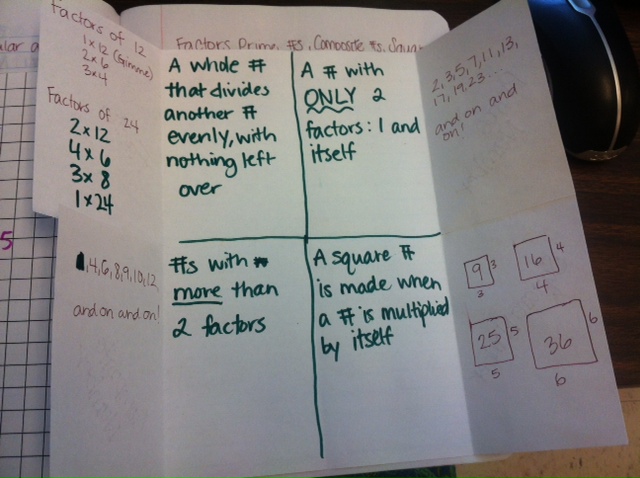 Factors of 12
1x12 (Gimme)
2x6
3x4
Factors of 24
2x12
4x6
3x8
1x24
Factors, Prime #s, Composite #s, Squar
A whole #
that divides
another #
evenly, with
nothing left
over
A # with
ONLY 2
factors: 1 and
itself
2, 3, 5, 7, 11, 13,
17, 19, 23...
and on and
on!
5
4, 6, 8, 9, 10, 12,
and on and on!
#s with
more than
2 factors
A square #
is made when
a # is multiplied
by itself
9 3
3
16 4
4
25 5
5
36 6
6